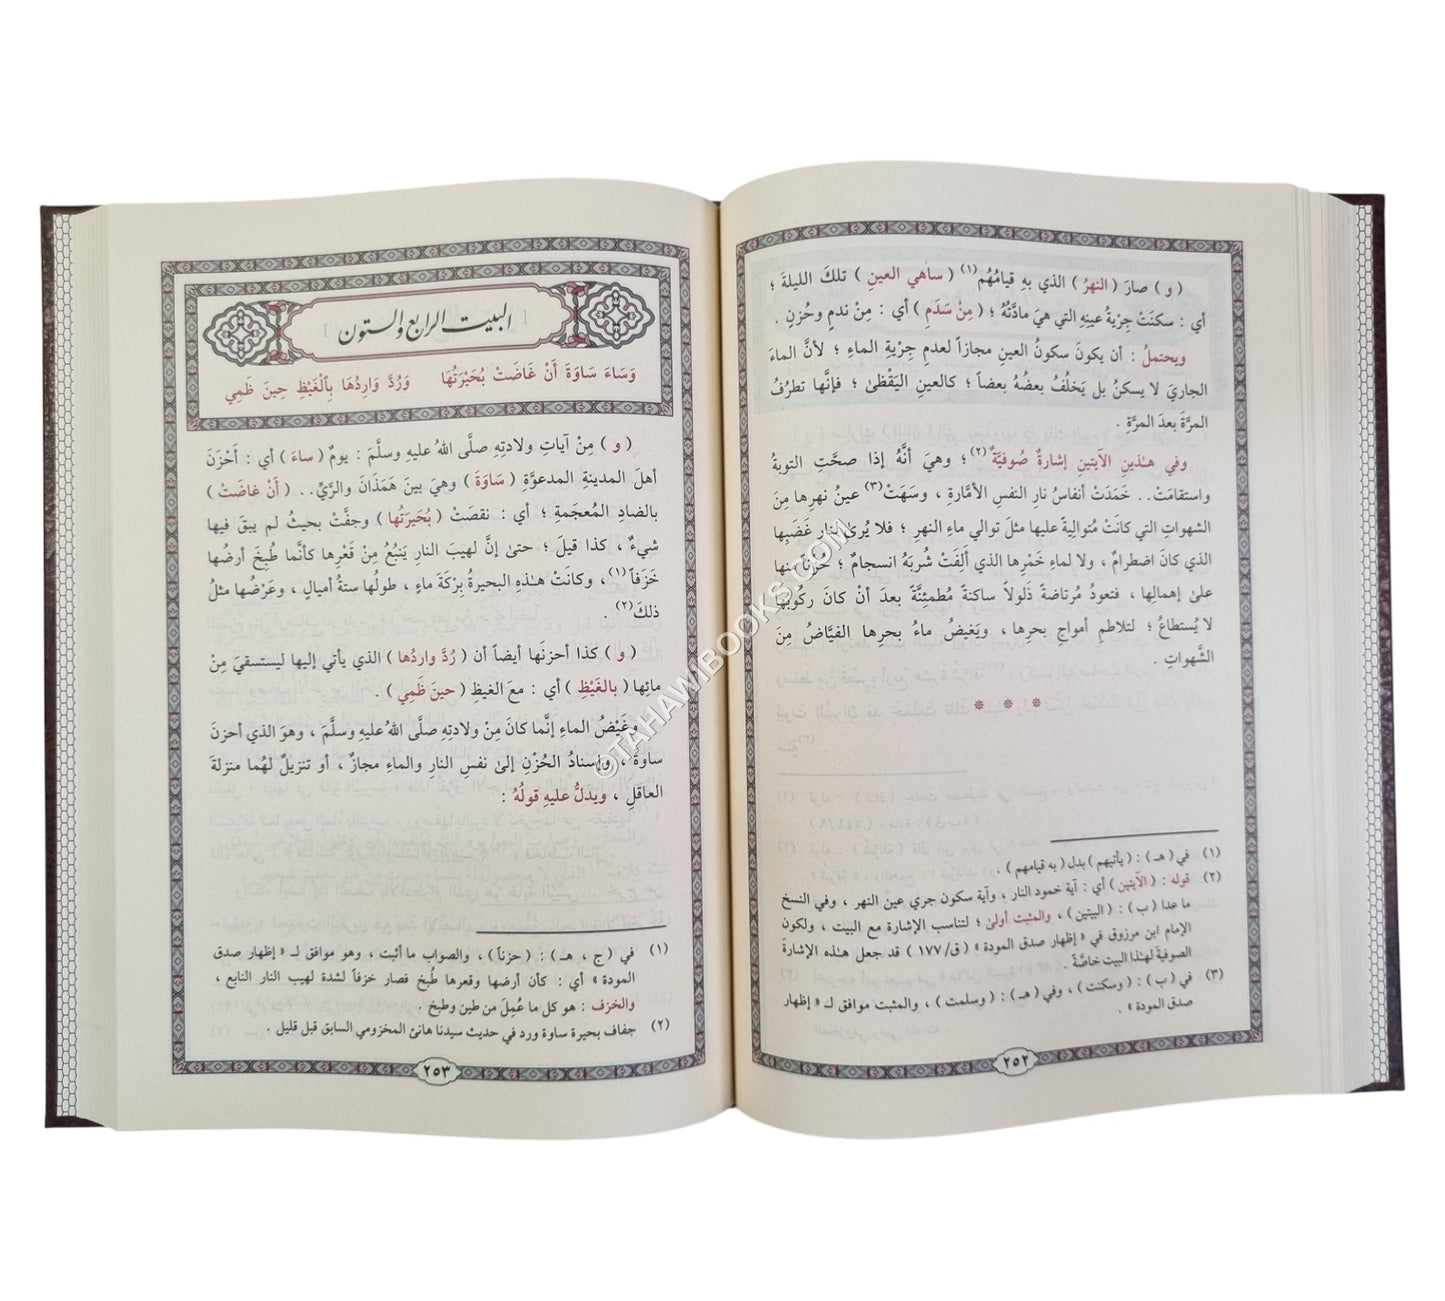 ( و ) صارَ ( النهرُ ) الذي بهِ قيامُهُم(١) ( ساهي العينِ ) تلكَ الليلةَ ؛
أي : سكنَتْ جِرْيةُ عينِهِ التي هيَ مادَّتُهُ ؛ ( مِنْ سَدَمِ ) أي : مِنْ ندمٍ وحُزنٍ .
ويحتملُ : أن يكونَ سكونُ العينِ مجازاً لعدمِ جِرْيةِ الماءِ ؛ لأنَّ الماءَ
الجاريَ لا يسكنُ بل يَخلُفُ بعضُهُ بعضاً ؛ كالعينِ اليَقْظىٰ ؛ فإنَّها تطرُفُ
المرَّةَ بعدَ المرَّةِ .
وفي هـٰذينِ الآيتينِ إشارةٌ صُوفيَّةٌ(٢) ؛ وهيَ أنَّهُ إذا صحَّتِ التوبةُ
واستقامَتْ.. خَمَدَتْ أنفاسُ نارِ النفسِ الأمَّارةِ ، وسَهَتْ(٣) عينُ نهرِها مِنَ
الشهواتِ التي كانَتْ مُتواليةً عليها مثلَ توالي ماءِ النهرِ ؛ فلا يُرىٰ لنارِ غَضَبِها
الذي كانَ اضطرامٌ ، ولا لماءِ خَمْرِها الذي أَلِفَتْ شُربَهُ انسجامٌ ؛ حُزْناً منها
علىٰ إهمالِها ، فتعودُ مُرتاضةً ذَلولاً ساكنةً مُطمئِنَّةً بعدَ أنْ كانَ ركُوبُها
لا يُستطاعُ ؛ لتلاطمِ أمواجِ بحرِها ، ويَغيضُ ماءُ بحرِها الفيَّاضُ مِنَ
الشَّهواتِ .
* * *
(١) في ( هـ ) : ( يأتيهم ) بدل ( به قيامهم ) .
(٢) قوله : ( الآيتين ) أي : آية خمود النار ، وآية سكون جري عين النهر ، وفي النسخ
ما عدا ( ب ) : ( البيتين ) ، والمثبت أولىٰ ؛ لتناسب الإشارة مع البيت ، ولكون
الإمام ابن مرزوق في « إظهار صدق المودة » ( ق/١٧٧ ) قد جعل هـٰذه الإشارة
الصوفية لهـٰذا البيت خاصَّة .
(٣) في ( ب ) : ( وسكنت ) ، وفي ( هـ ) : ( وسلمت ) ، والمثبت موافق لـ « إظهار
صدق المودة » .
٢٥٢
[ البيت الرابع والستون ]
وَسَاءَ سَاوَةَ أَنْ غَاضَتْ بُحَيْرَتُهَا وَرُدَّ وَارِدُهَا بِٱلْغَيْظِ حِينَ ظَمِي
( و ) مِنْ آياتِ ولادتِهِ صلَّى اللهُ عليهِ وسلَّمَ : يومٌ ( ساءَ ) أي : أَحْزَنَ
أهلَ المدينةِ المدعوَّةِ ( سَاوَةَ ) وهيَ بينَ هَمَذانَ والرَّيِّ.. ( أَنْ غاضَتْ )
بالضادِ المُعجَمةِ ؛ أي : نقصَتْ ( بُحَيرَتُها ) وجفَّتْ بحيثُ لم يبقَ فيها
شيءٌ ، كذا قيلَ ؛ حتىٰ إنَّ لهيبَ النارِ يَنبُعُ مِنْ قَعْرِها كأنَّما طُبِخَ أرضُها
خَزَفاً(١) ، وكانَتْ هـٰذهِ البحيرةُ بِرْكةَ ماءٍ ، طولُها ستةُ أميالٍ ، وعَرْضُها مثلُ
ذلكَ(٢) .
( و ) كذا أحزنَها أيضاً أن ( رُدَّ واردُها ) الذي يأتي إليها ليستسقيَ مِنْ
مائِها ( بالغَيْظِ ) أي : معَ الغيظِ ( حينَ ظَمِي ) .
وغَيْضُ الماءِ إنَّما كانَ مِنْ ولادتِهِ صلَّى اللهُ عليهِ وسلَّمَ ، وهوَ الذي أحزنَ
ساوةَ ، وإسنادُ الحُزْنِ إلىٰ نفسِ النارِ والماءِ مجازٌ ، أو تنزيلٌ لهُما منزلةَ
العاقلِ ، ويدلُّ عليهِ قولُهُ :
(١) في ( ج ، هـ ) : ( حزناً ) ، والصواب ما أثبت ، وهو موافق لـ « إظهار صدق
المودة » أي : كأن أرضها وقعرها طُبخ فصار خزفاً لشدة لهيب النار النابع ،
والخزف : هو كل ما عُمِلَ من طين وطبخ .
(٢) جفاف بحيرة ساوة ورد في حديث سيدنا هانئ المخزومي السابق قبل قليل .
٢٥٣
©TAHAWIBOOKS.COM